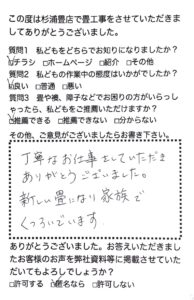 この度は杉浦畳店で畳工事をさせていただきま
してありがとうございました。
質問1 私どもをどちらでお知りになりましたか？
□チラシ □ホームページ □紹介 □その他
質問2 私どもの作業中の態度はいかがでしたか？
□良い □普通 □悪い
質問3 畳や襖、障子などでお困りの方がいらっし
ゃったら、私どもをご推薦いただけますか？
□推薦できる □推薦できない □分からない
その他、ご意見がございましたらお書き下さい。
丁寧なお仕事をしていただき
ありがとうございました。
新しい畳になり家族で
くつろいでいます
ありがとうございました。お答えいただきまし
たお客様のお声を弊社資料等に掲載させていた
だいてもよろしでしょうか？
□許可する □匿名なら □許可しない